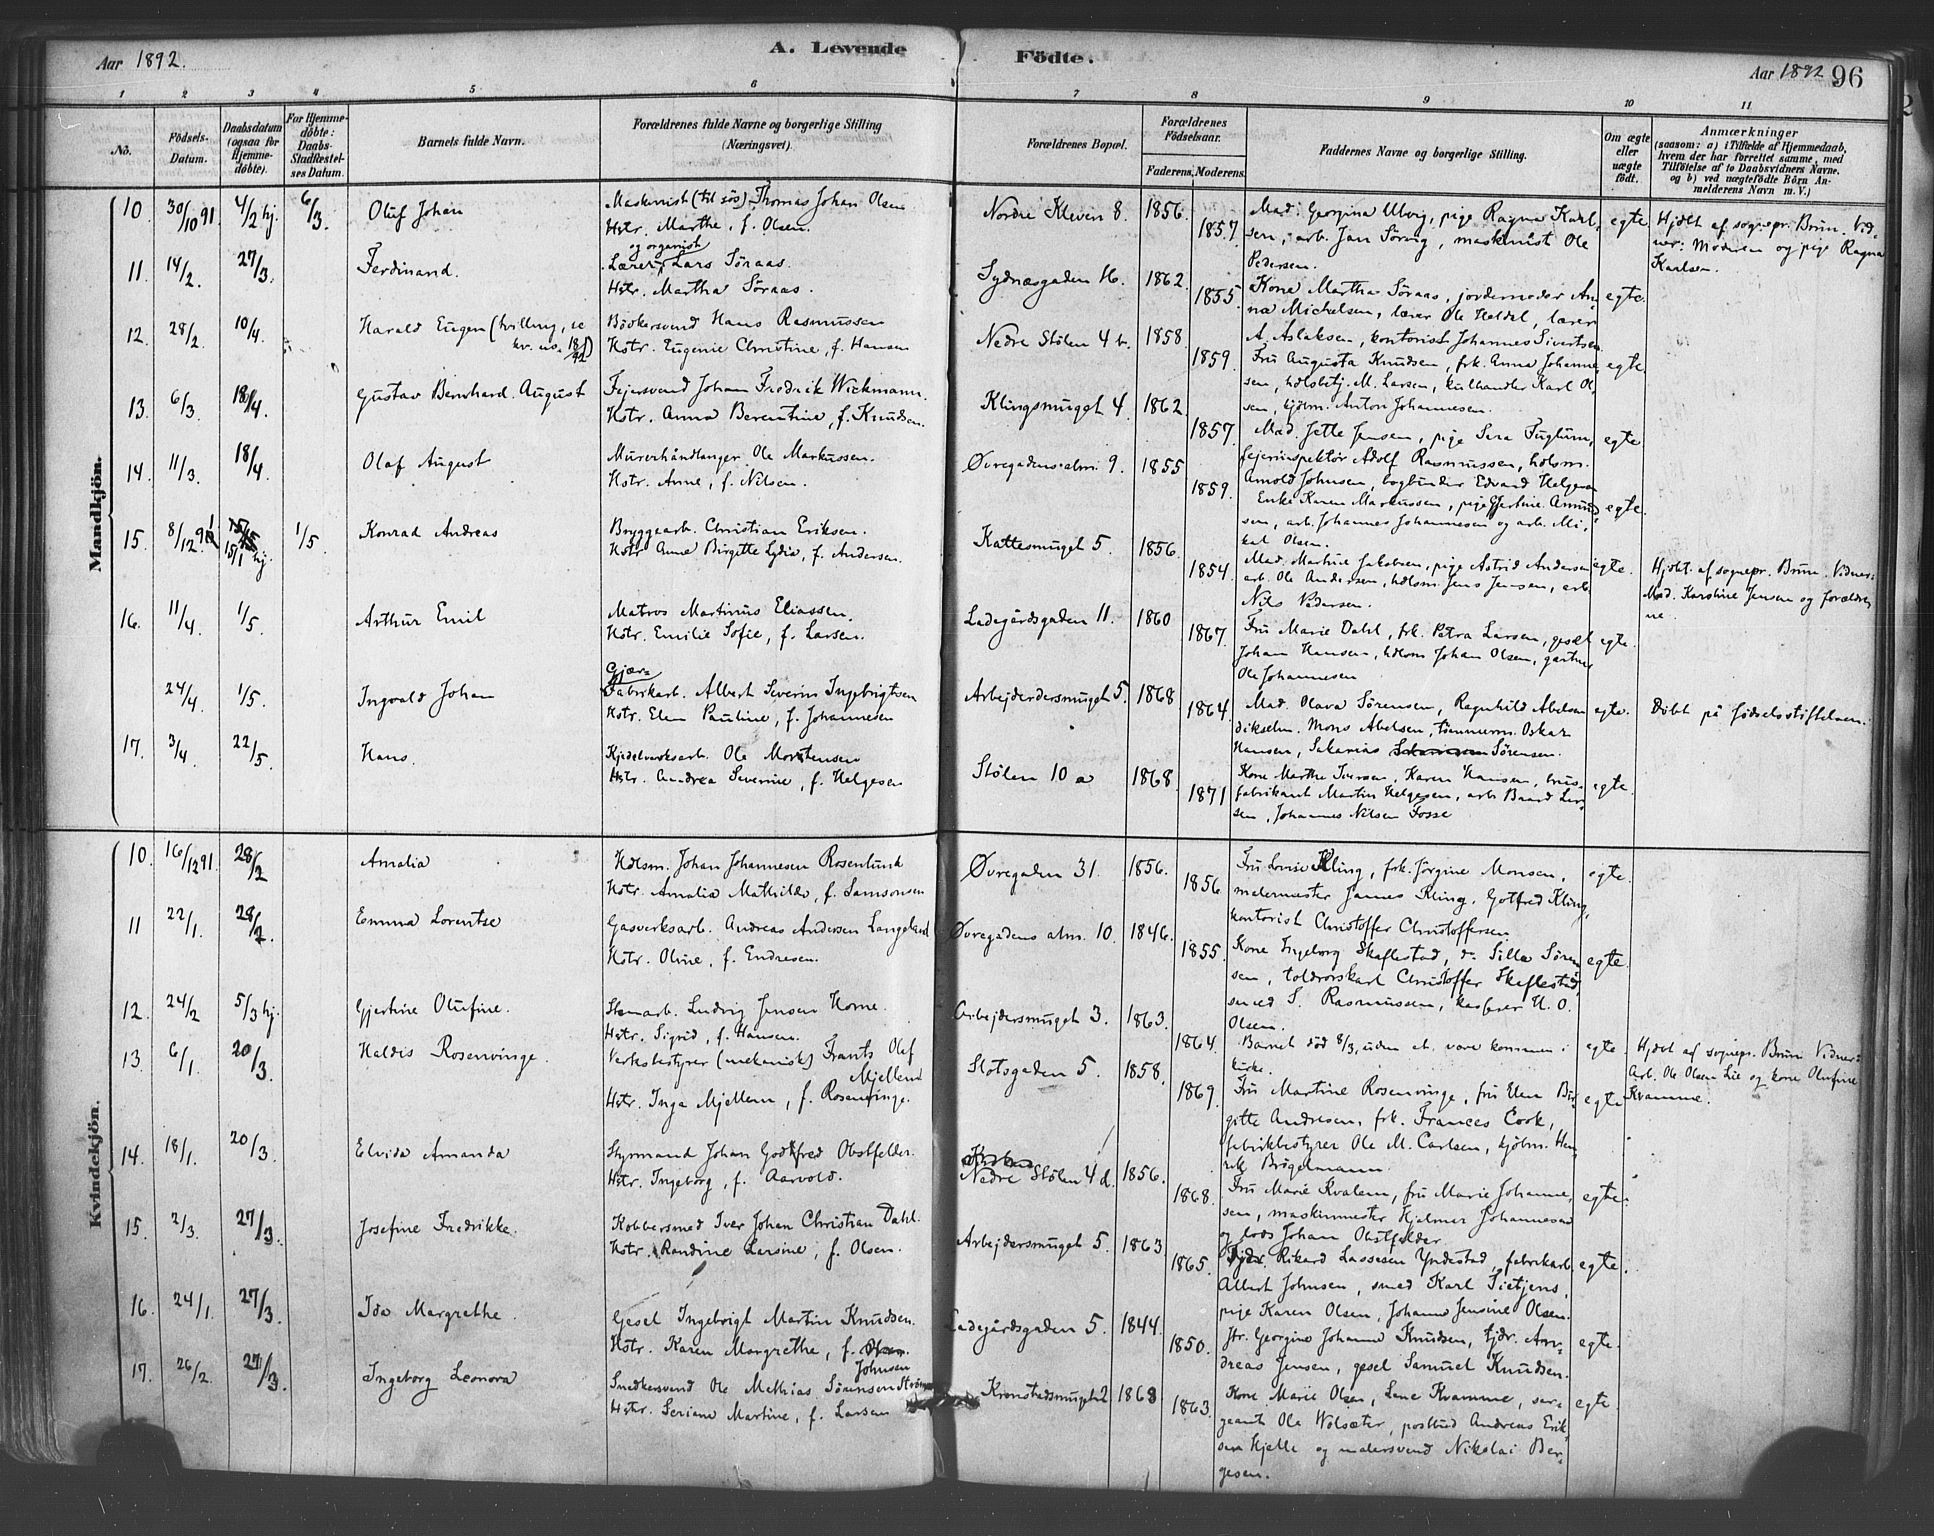 Aar 1892.
A. Levende
Födte.
Aar 1892
96
1 2 3 4 5 6 7 8 9 10 11
No.
Födsels-Datum.
Daabsdatum (ogsaa for Hjemmedöbte).
For Hjemmedöbte: Daabs-Stadfæstelses Datum.
Barnets fulde Navn.
Forældrenes fulde Navne og borgerlige Stilling (Næringsvei).
Forældrenes Bopæl.
Forældrenes Födselsaar.
Faderens. Moderens.
Faddernes Navne og borgerlige Stilling.
Om ægte eller uægte födt.
Anmærkninger
(saasom: a) i Tilfælde af Hjemmedaab, hvem der har forrettet samme, med Tilföielse af to Daabsvidners Navne, og b) ved uægtefödte Börn Anmelderens Navn m. V.)
Mandkjön.
10. 30/10 91. 4/2 hj. 6/3. Oluf Johan
Maskinist (til søs) Thomas Johan Olsen
Hstr. Marthe, f. Olsen.
Nordre Kleven 8. 1856. 1857.
Mad. Georgina Ulvig, pige Ragna Karl-
sen, arb. Jan Sørvig, maskinist Ole
Pedersen.
egte.
Hjdbt af sognepr. Brun. Vid-
ner: Moderen og pige Ragna
Karlsen.
11. 14/2. 27/3. Ferdinand.
og organist
Lærer Lars Søraas.
Hstr. Martha Søraas.
Sydnæsgaden 16. 1862. 1855.
Kone Martha Søraas, jordemoder An-
na Michelsen, lærer Ole Heldal, lærer
A. Aslaksen, kontorist Johannes Sivertsen
egte.
12. 28/2. 10/4. Harald Eugen (tvilling, se
kv. no. 18/92)
Bödkersvend Hans Rasmussen
Hstr. Eugenie Christine, f. Hansen
Nedre Stølen 4 b. 1858. 1859.
Fru Augusta Knudsen, frk. Anna Johanne-
sen, hdlsbetj. M. Larsen, kulhandler Karl Ol-
sen, kjøbm. Anton Johannesen.
egte.
13. 6/3. 18/4. Gustav Bernhard August
Fejersvend Johan Fredrik Wickmann.
Hstr. Anna Berentine, f. Knudsen.
Klingsmuget 4. 1862. 1857.
Mad. Jette Jensen, pige Sera Fuglum,
fejerinspektør Adolf Rasmussen, hdlsm.
Arnold Johnsen, bogbinder Edvard Helgesen
egte
14. 11/3. 18/4. Olaf August
Murerhåndlanger Ole Markussen.
Hstr. Anne, f. Nilsen.
Øvregadens alm. 9. 1855 1859.
Enke Karen Markussen, pige Gjertine Amund-
sen, arb. Johannes Johannesen og arb. Mi-
kal Olsen.
egte.
15. 8/12 91 15/1 hj. 1/5. Konrad Andreas
Bryggearb. Christian Eriksen.
Hstr. Anna Birgitte Lydia, f. Andersen.
Kattesmuget 5. 1856. 1854.
Mad. Martine Jakobsen, pige Astrid Andersen
arb. Ole Andersen, hdlsm. Jens Jensen, arb.
Nils Pedersen.
egte.
Hjdbt. af sognepr. Brun. Vidner:
Mad. Karoline Jensen og foreldre-
ne.
16. 11/4. 1/5. Arthur Emil
Matros Martinus Eliassen.
Hstr. Emilie Sofie, f. Larsen.
Ladegårdsgaden 11. 1860 1867.
Fru Marie Dahl, frk. Petra Larsen, gesel
Johan Hansen, hdlsm Johan Olsen, gartner
Ole Johannesen
egte.
24/4. 1/5. Ingvald Johan
Gjær-
Fabrikarb. Albert Severin Ingebrigtsen
Hstr. Elen Pauline, f. Johannesen
Arbejderdersmuget 5. 1868 1864.
Mad. Olava Sørensen, Ragnhild Abelsen
Mons Abelsen, tømmerm. Oskar
Hansen, Sakarias Sørensen.
egte.
Døbt på fødselsstiftelsen.
17. 3/4. 22/5. Hans.
Kjedelverksarb. Ole Mortensen
Hstr. Andrea Severine, f. Helgesen
Stølen 10 a 1868. 1871
Kone Marthe Iversen, Karen Hansen, brus-
fabrikant Martin Helgesen, arb. Baard Lar-
sen, Johannes Nilsen Fosse
egte.
Kvindekjön.
10. 16/12 91. 28/2 Amalia
Hdlsm. Johan Johannesen Rosenlund
Hstr. Amalia Mathilde, f. Samsonsen
Øvregaden 31. 1856. 1856
Fru Lovise Kling, frk. Jørgine Monsen,
malermester James Kling, Gotfred Kling,
kontorist Christoffer Christoffersen
egte.
11 22/1. 28/2. Emma Lorentse
Gasverksarb. Andreas Andersen Langeland
Hstr. Oline, f. Endresen.
Øvregadens alm. 10. 1846. 1855.
Kone Ingeborg Skaflestad, do Silla Søren-
sen, toldrorskarl Christoffer Skaflestad,
smed S. Rasmussen, kasserer H. O.
Olsen.
egte.
12. 24/2 5/3 hj. Gjertine Olufine.
Stenarb. Ludvig Jensen Horne.
Hstr. Sigrid, f. Hansen.
Arbejdersmuget 3. 1863. 1864.
Barnet død 8/3, uden at være kommen i
kirke.
egte.
Hjdbt af sognepr. Brun Vidner:
Arb. Ole Olsen Lie og kone Olufine
Kvamme.
13. 6/1. 20/3. Haldis Rosenvinge.
Verksbestyrer (mekanisk) Frants Olef
Mjellem
Hstr. Inga Mjellem, f. Rosenvinge.
Slotsgaden 5. 1858. 1869.
Fru Martine Rosenvinge, fru Elen Bir-
gitte Andresen, frk. Frances Cook,
fabrikbestyrer Ole M. Carlsen, kjøbm. Hen-
rik Brögelmann.
egte
14. 18/1. 20/3. Elvida Amanda
Styrmand Johan Godtfred Obstfelder.
Hstr. Ingeborg, f. Aarvold.
Nedre Stølen 4 d. 1856. 1868.
Fru Marie Kvalem, fru Marie Johanne-
sen, maskinmester Hjelmer Johannesen
og lods Johan Obstfelder.
egte.
15. 2/3. 27/3. Josefine Fredrikke.
Kobbersmed Iver Johan Christian Dahl.
Hstr. Randine Larsine, f. Olsen.
Arbejdersmuget 5. 1863 1865.
Rikard Lassesen Yndestad, fabrikarb.
Albert Johnsen, smed Karl Tietjens,
pige Karen Olsen, Johanna Jensine Olsen.
egte.
16. 24/1. 27/3. Ida Margrethe.
Gesel Ingebrigt Martin Knudsen.
Hstr. Karen Margrethe, f.
Johnsen
Ladegårdsgaden 5. 1844. 1850.
Jfr. Georgine Johanne Knudsen, tjdr. An-
dreas Jensen, gesel Samuel Knudsen.
egte.
17. 26/2. 27/3. Ingeborg Leonora
Snedkersvend Ole Mathias Sørensen
Hstr. Seriane Martine, f. Larsen
Kronstadsmuget 2 1868 1863.
Kone Marie Olsen, Lene Kvamme, ser-
geant Ole Wolsæter, postbud Andreas Erik-
sen Hjelle og malersvend Nikolai Ber-
gesen.
egte.